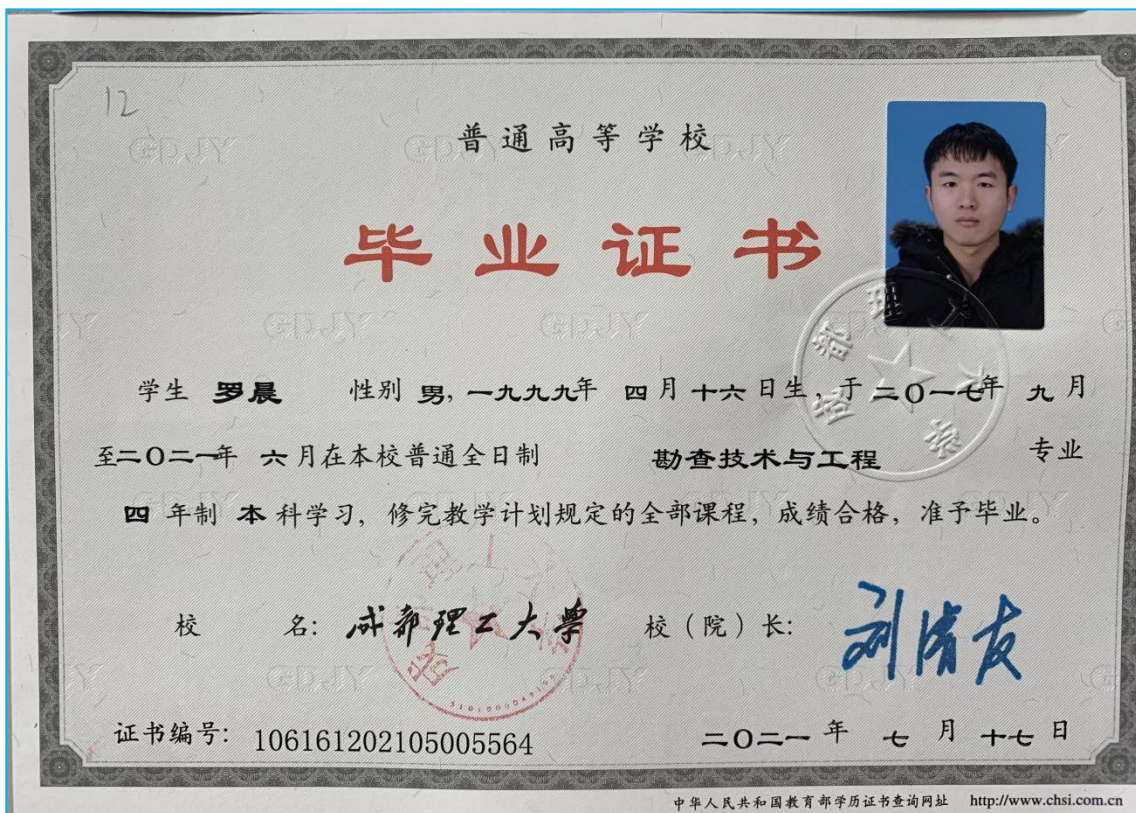 12
普通高等学校
毕业证书
学生 罗晨 性别 男, 一九九九年 四月十六日生, 于二〇一七年 九月
至二〇二一年 六月在本校普通全日制 勘查技术与工程 专业
四 年制 本 科学习, 修完教学计划规定的全部课程, 成绩合格, 准予毕业。
校 名: 成都理工大学 校(院)长: 刘清友
证书编号: 106161202105005564 二〇二一 年 七 月 十七 日
中华人民共和国教育部学历证书查询网址 http://www.chsi.com.cn